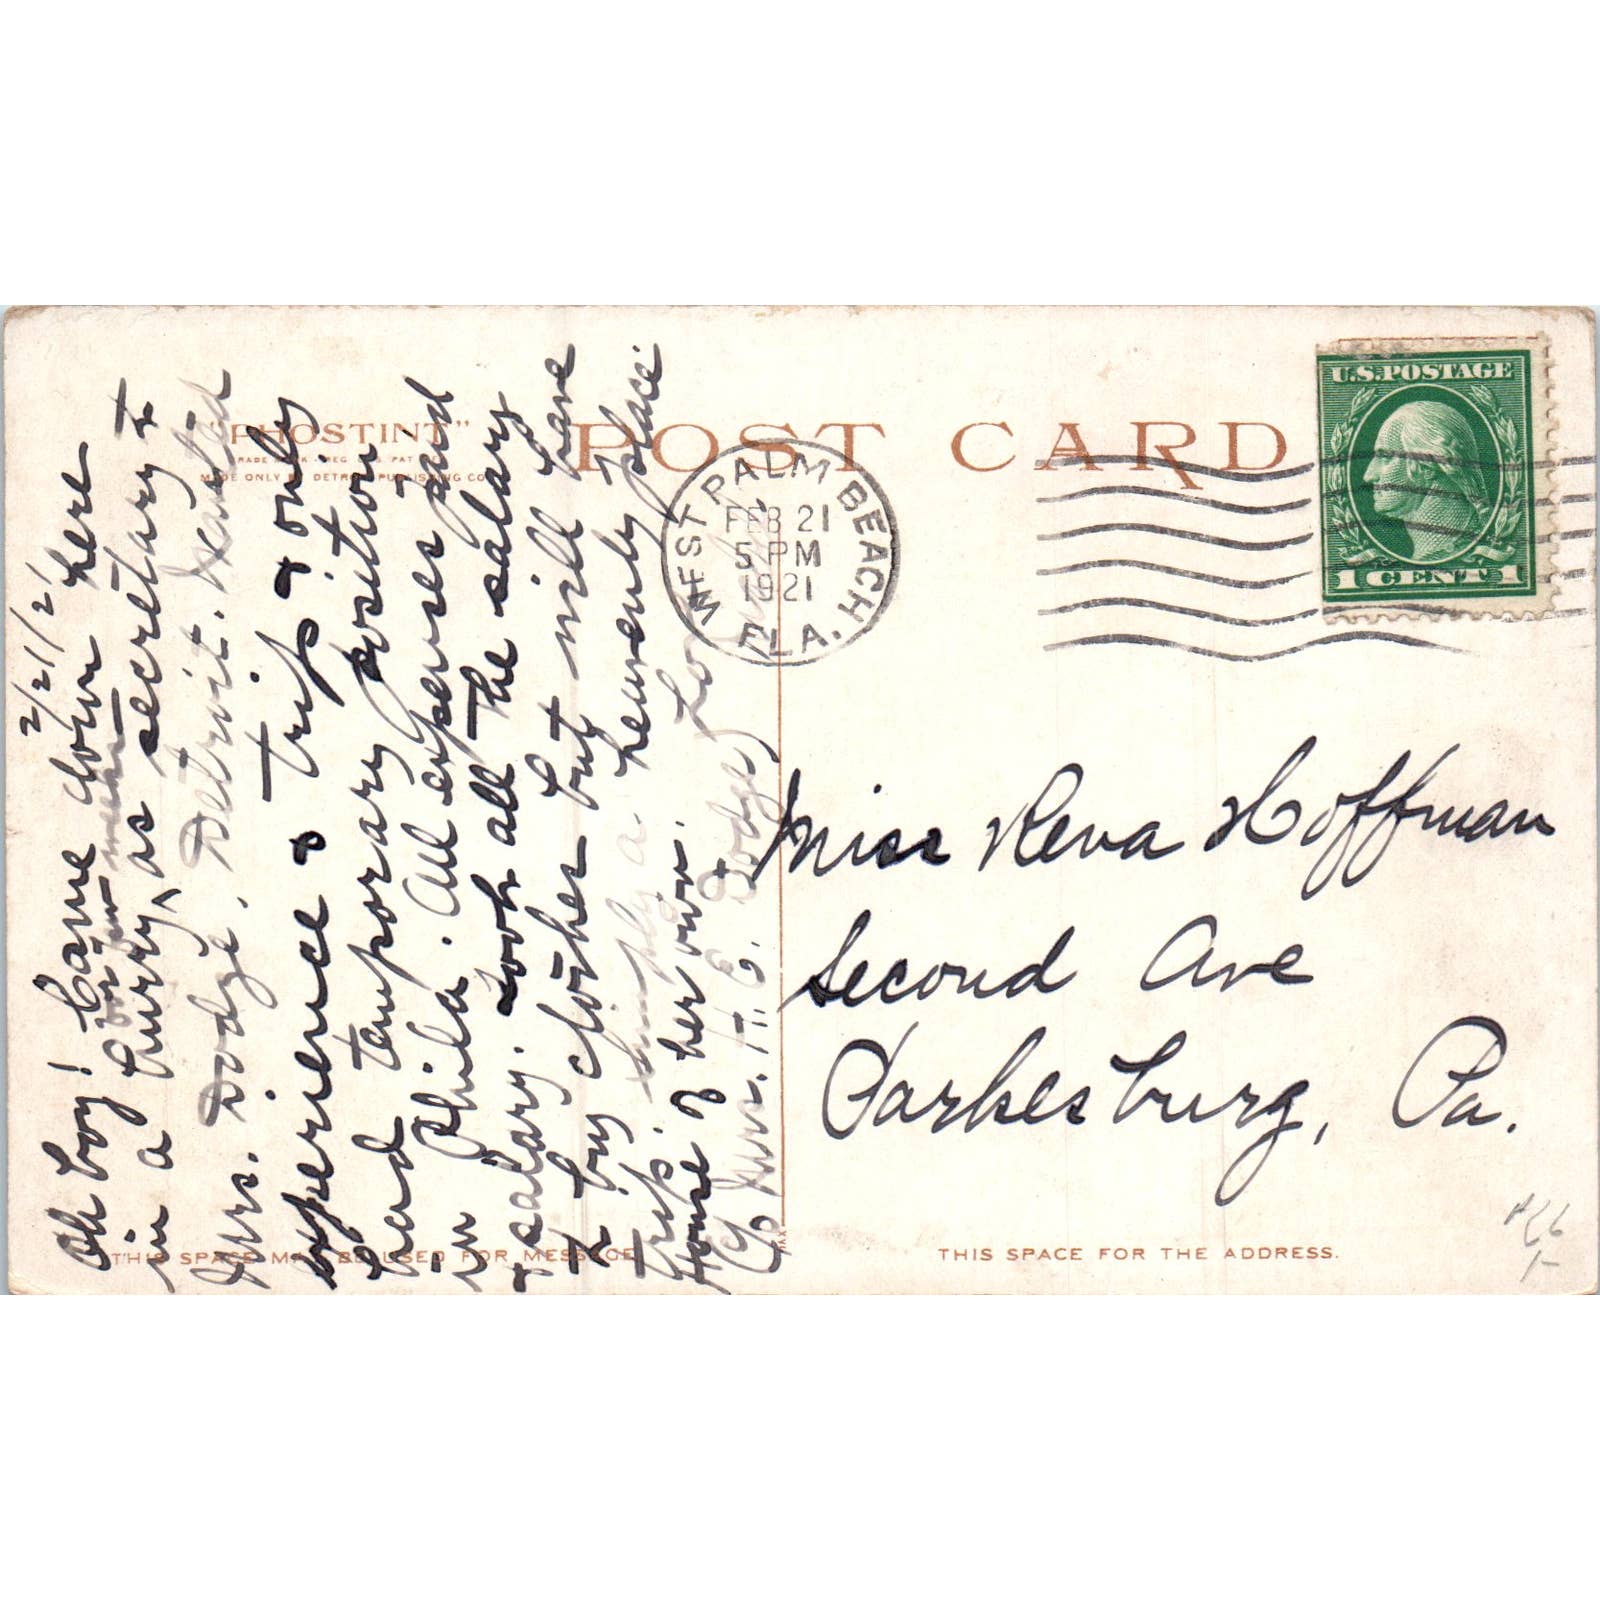 "PHOSTINT"
POST CARD
MADE ONLY BY DETROIT PUBLISHING CO.
WEST PALM BEACH
FEB 21
5 PM
1921
FLA.
U.S. POSTAGE
1 CENT 1
2/21/21
Oh boy! Came down here
for few weeks
in a hurry ^ as secretary to
Mrs. Dodge, Detroit. Wanted
experience & trip & only
had temporary position
in Phila. All expenses paid
& salary. Took all the salary
to buy clothes but will have
trip. Simply a heavenly place
House of her own.
C/o Mrs. H. E. Dodge
Miss Reva Hoffman
Second Ave
Parkesburg, Pa.
THIS SPACE MAY BE USED FOR MESSAGE
THIS SPACE FOR THE ADDRESS.